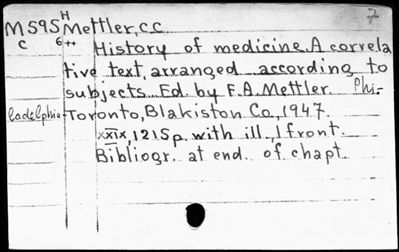 H 7
M595 Mettler, c.c.
c 6++ History of medicine. A correla
tive text, arranged according to
subjects. Ed. by F.A. Mettler. Phi-
ladelphia- Toronto, Blakiston Co, 1947.
xxix, 1215 p. with ill., 1 front.
Bibliogr. at end. of chapt.